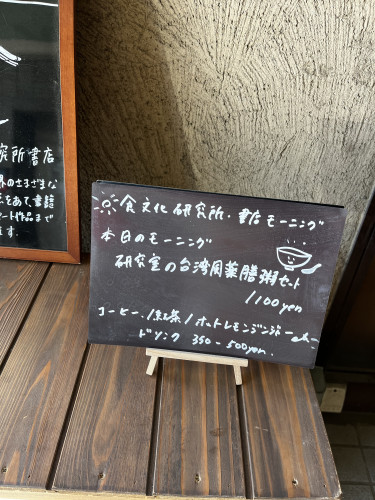 究所書店
界のさまざまな
をあて、書籍
アート作品まで
ます。
食文化研究所・書店モーニング
本日のモーニング
研究室の台湾風薬膳粥セット
1100yen
コーヒー/紅茶/ホットレモンジンジャーetc
ドリンク 350-500yen.